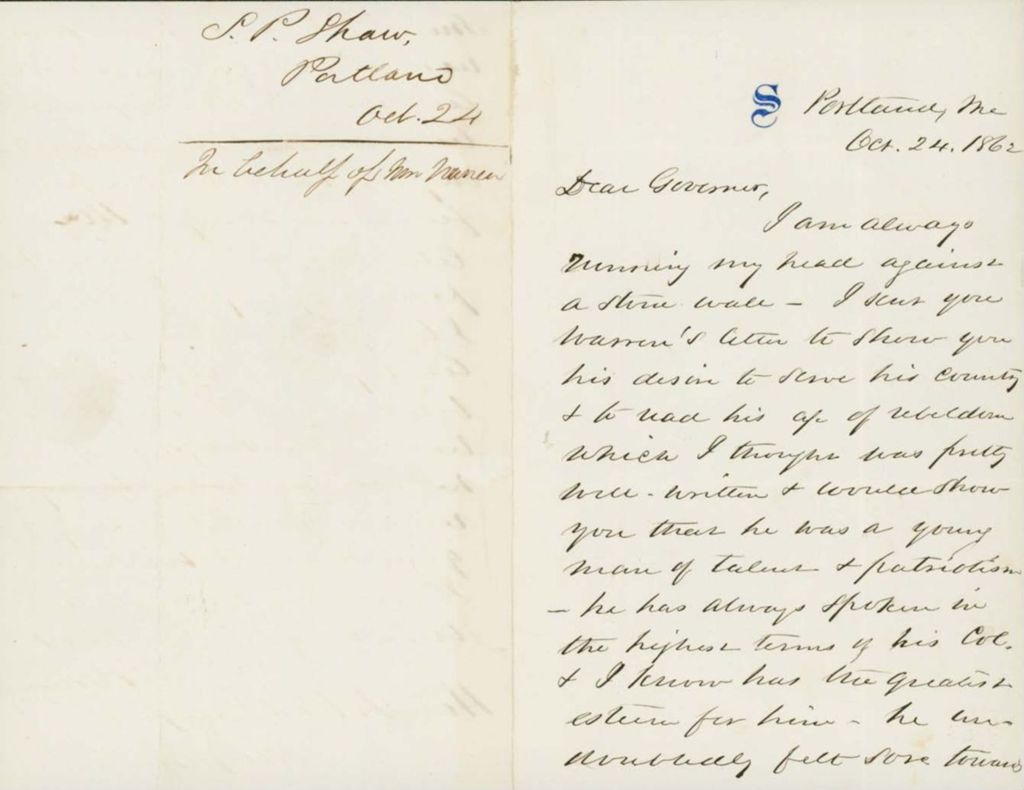 S. P. Shaw,
Portland
Oct. 24
In behalf of Mr Warren
S Portland, Me
Oct. 24. 1862
Dear Governor,
I am always
running my head against
a stone wall – I sent you
Warren's letter to show you
his desire to serve his country
& to read his of rebeldom
which I thought was pretty
well-written & would show
you that he was a young
man of talent & patriotism
– he has always spoken in
the highest terms of his Col.
& I know has the greatest
esteem for him – he un-
doubtedly felt sore toward